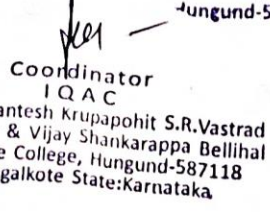 Hungund-5
Coordinator
I Q A C
antesh Krupapohit S.R.Vastrad
& Vijay Shankarappa Bellihal
e College, Hungund-587118
galkote State:Karnataka